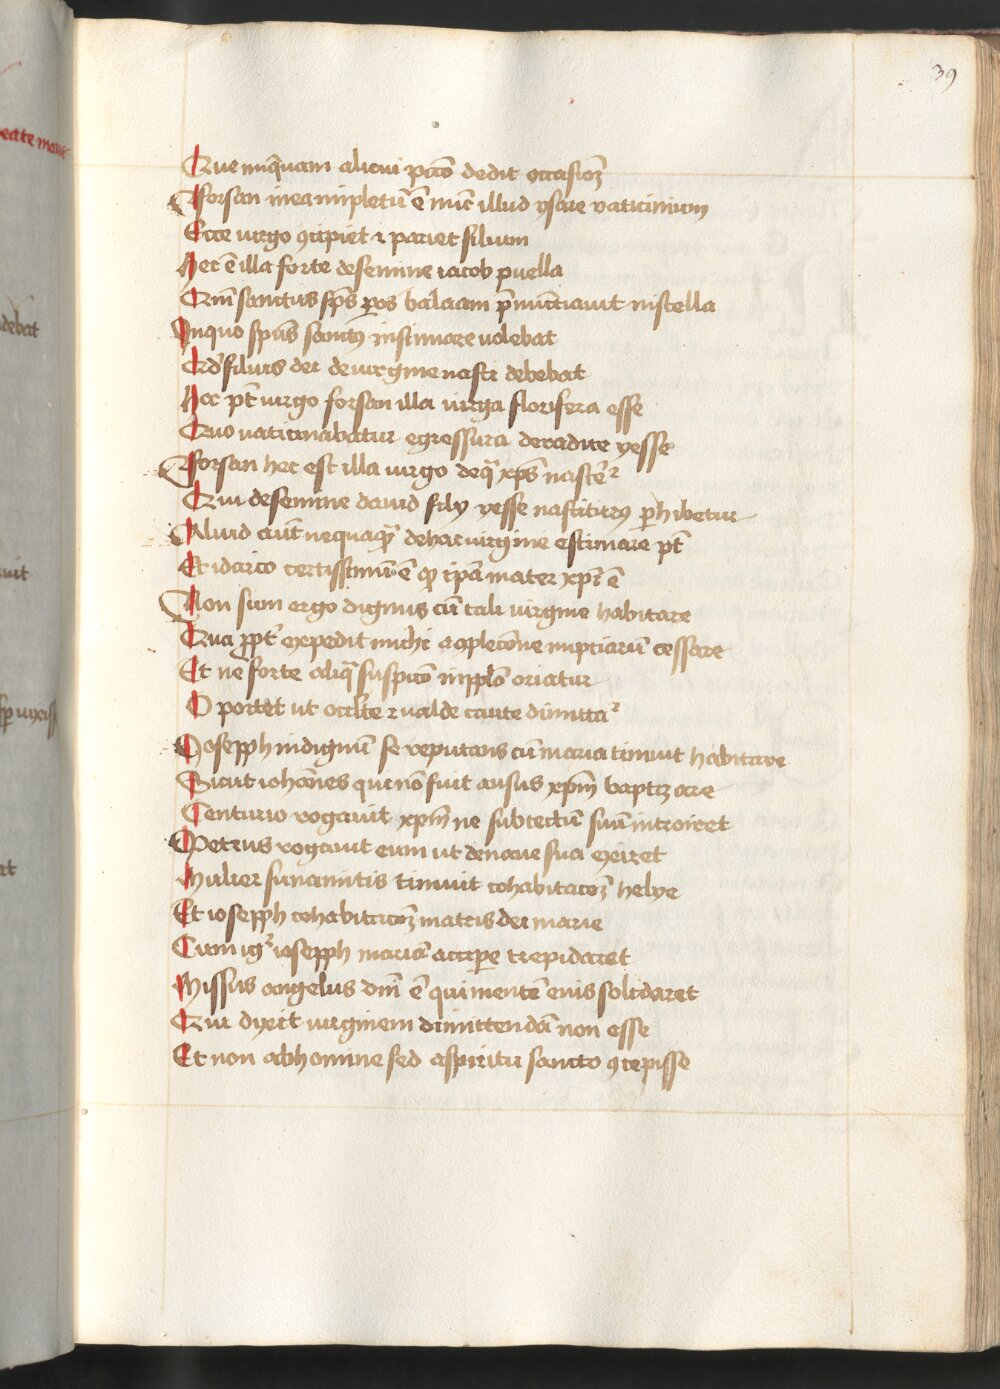 39
Que nu̅quam alicui pcto̅ dedit occasio̅z
Forsan in ea impletu̅ e̅ nu̅c illud ysaie vaticinium
Ecce uirgo ꝯcipiet ⁊ pariet filium
Hec e̅ illa forte de semine iacob puella
Qua̅ sanctus sp̅s p̱ os balaam p̅nu̅ctiauit in stella
In quo spu̅s sanctꝰ insinuare uolebat
Qd̕ filius dei de uirgine nasci debebat
Hec pt̅ uirgo forsan illa uirga florifera esse
Quo vaticinabatur egressura de radice yesse
Forsan hec est illa uirgo de q̅ xp̅s nascet᷒
Qui de semine dauid filij yesse nasciturꝰ ꝑhibetur
Aliud aut̅ nequaq̅ de hac uirgine estimare pt̅
Et idcirco certissimu̅ e̅ ꝙ ip̅a mater xpi̅ e̅
Non sum ergo dignus cu̅ tali uirgine habitare
Qua ꝓpt᷒ expedit michi a ꝯplecio̅ne nuptiaru̅ cessare
Et ne forte aliq̅ suspicio̅ in pplo̅ oriatur
Oportet ut occlte̅ ⁊ ualde caute dimitta᷒
Joseph indignu̅ se reputans cu̅ maria timuit habitare
Sicut ioha̅nes qui no̅ fuit ausus xpm̅ baptizare
Centurio rogauit xpm̅ ne sub tectu̅ suu̅ introiret
Petrus rogauit eum ut de naue sua exiret
Mulier sunamitis timuit cohabitaco̅z helye
Et iosepph cohabitaco̅z matris dei marie
Cum ig᷒ iosepph maria̅ accipe̅ trepidaret
Missus angelus dni̅ e̅ qui mente̅ eius solidaret
Qui dixit uirginem dimittenda̅ non esse
Et non ab homine sed a spiritu sancto ꝯcepisse